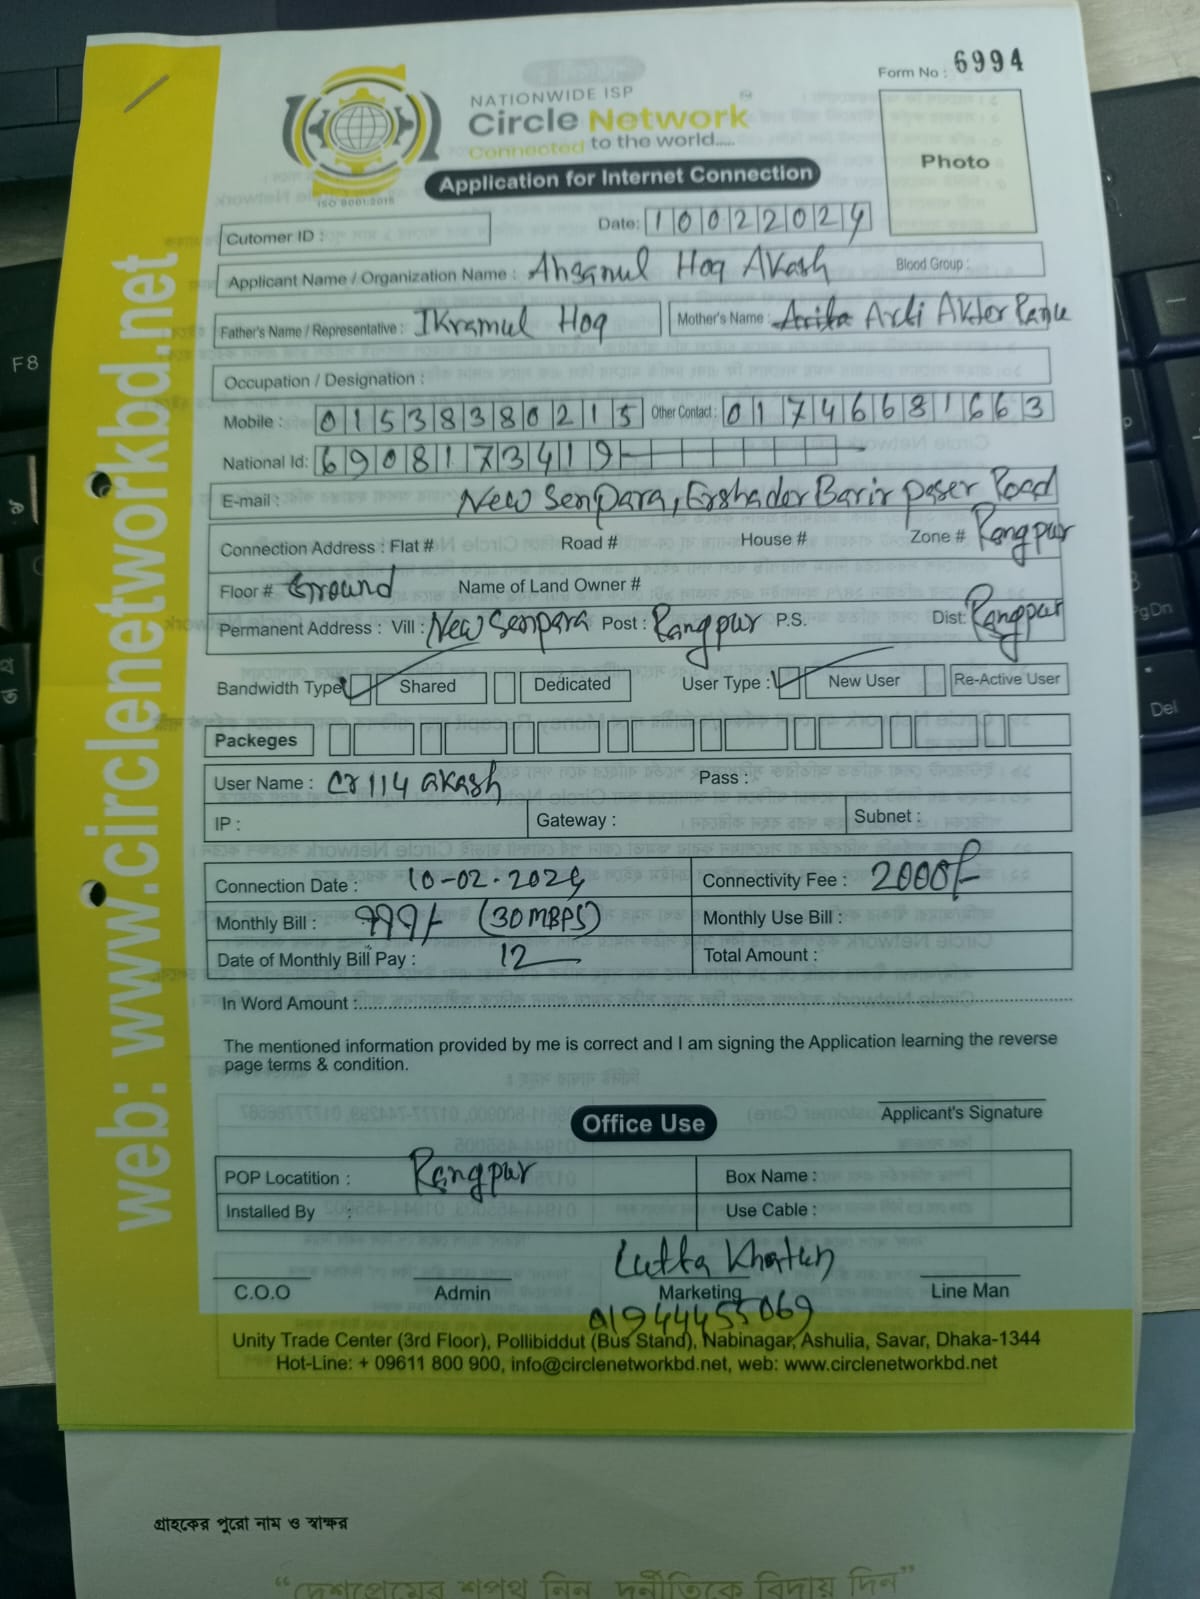 Form No : 6994
NATIONWIDE ISP
Circle Network
Connected to the world.....
ISO 9001:2015
Application for Internet Connection
Photo
Cutomer ID :
Date: 10022024
Applicant Name / Organization Name : Ahsanul Hoq Akash Blood Group :
Father's Name / Representative : Ikramul Hoq Mother's Name : Akter
Occupation / Designation :
Mobile : 01538380215 Other Contact : 01746681663
National Id: 6908173419
E-mail : New Senpara, Ershader Barir paser Road
Connection Address : Flat # Road # House # Zone # Rangpur
Floor # Ground Name of Land Owner #
Permanent Address : Vill : New Senpara Post : Rangpur P.S. Dist: Rangpur
Bandwidth Type Shared Dedicated User Type : New User Re-Active User
Packeges
User Name : cr114 akash Pass :
IP : Gateway : Subnet :
Connection Date : 10-02-2024 Connectivity Fee : 2000/-
Monthly Bill : 999/- (30 MBPS) Monthly Use Bill :
Date of Monthly Bill Pay : 12 Total Amount :
In Word Amount :
The mentioned information provided by me is correct and I am signing the Application learning the reverse
page terms & condition.
Applicant's Signature
Office Use
POP Locatition : Rangpur Box Name :
Installed By : Use Cable :
Lutfa Khatun
C.O.O Admin Marketing Line Man
01944455069
Unity Trade Center (3rd Floor), Pollibiddut (Bus Stand), Nabinagar, Ashulia, Savar, Dhaka-1344
Hot-Line: + 09611 800 900, info@circlenetworkbd.net, web: www.circlenetworkbd.net
web: www.circlenetworkbd.net
গ্রাহকের পুরো নাম ও স্বাক্ষর
“দেশপ্রেমের শপথ নিন, দুর্নীতিকে বিদায় দিন”
F8
PgDn
Del